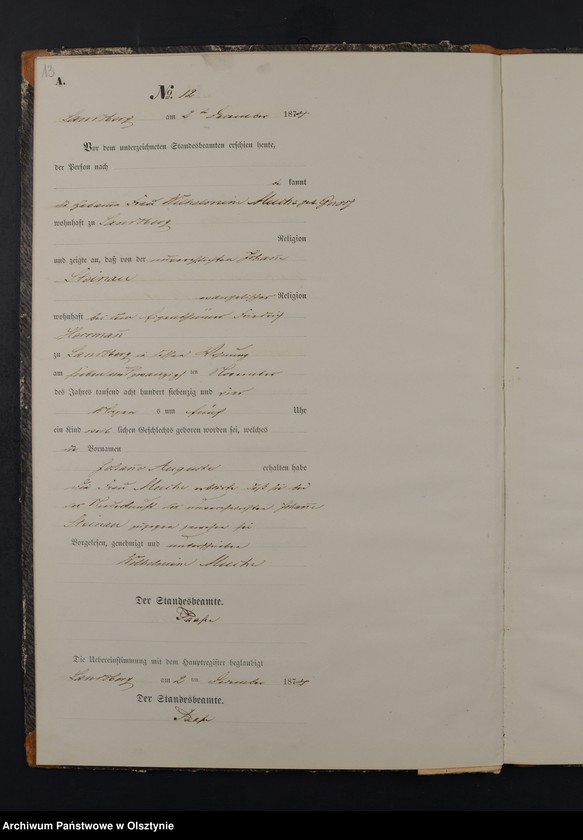 13
A.
No. 12
Landsberg am 2ten Dezember 1874
Vor dem unterzeichneten Standesbeamten erschien heute,
der Person nach
kannt
die Hebamme Frau Wilhelmine Muche geb.
wohnhaft zu Landsberg
Religion
und zeigte an, daß von der unverehelichten Johanna
Steinau
evangelischer Religion
wohnhaft bei dem Eigenthümer Friedrich
Herrmann
zu Landsberg in dessen Wohnung
am sieben und zwanzigsten November
des Jahres tausend acht hundert siebenzig und vier
Morgens um fünf Uhr
ein Kind weiblichen Geschlechts geboren worden sei, welches
die Vornamen
Johanna Auguste erhalten habe
die Frau Muche erklärte daß sie bei
der Niederkunft der unverehelichten Johanna
Steinau zugegen gewesen sei
Vorgelesen, genehmigt und unterschrieben
Wilhelmine Muche
Der Standesbeamte.
Die Uebereinstimmung mit dem Hauptregister beglaubigt
Landsberg am 2ten Dezember 1874
Der Standesbeamte.
Archiwum Państwowe w Olsztynie